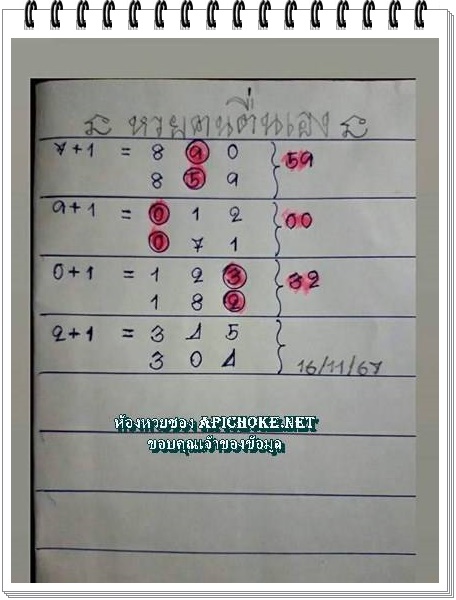 หวยฅนตื่นเอง
7+1 = 8 9 0 59
8 5 9
9+1 = 0 1 2 00
0 7 1
0+1 = 1 2 3 32
1 8 2
2+1 = 3 4 5
3 0 4
16/11/67
ห้องหวยซอง APICHOKE.NET
ขอบคุณเจ้าของข้อมูล